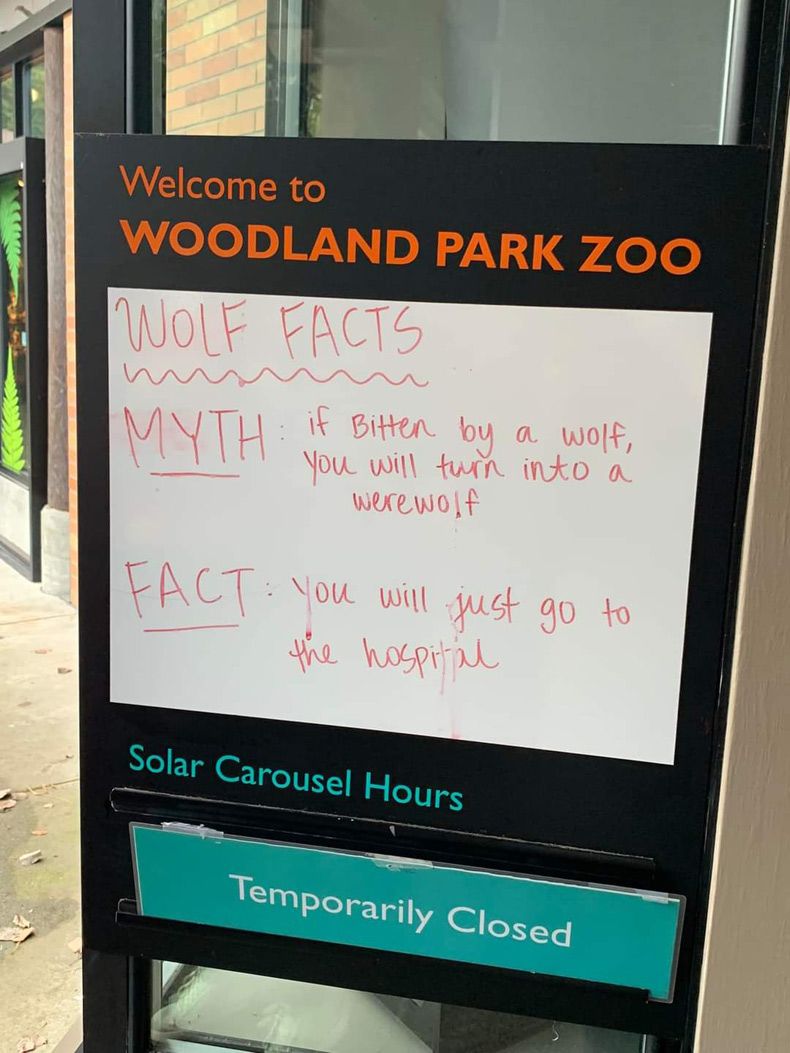 Welcome to
WOODLAND PARK ZOO
WOLF FACTS
MYTH: if Bitten by a wolf,
you will turn into a
werewolf
FACT: you will just go to
the hospital
Solar Carousel Hours
Temporarily Closed